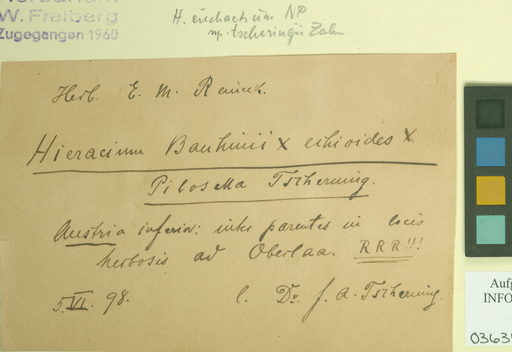 Herbarium
W. Freiberg
Zugegangen 1960
H. euchaetium NP
ssp. tscheringii Zahn
Herb. E. M. Reineck.
Hieracium Bauhinii x echioides x
Pilosella Tscherning.
Austria inferior: inter parentes in locis
herbosis ad Oberlaa. RRR!!!
5.VI. 98. l. Dr. f. A. Tscherning.
Aufg
INFO
0363